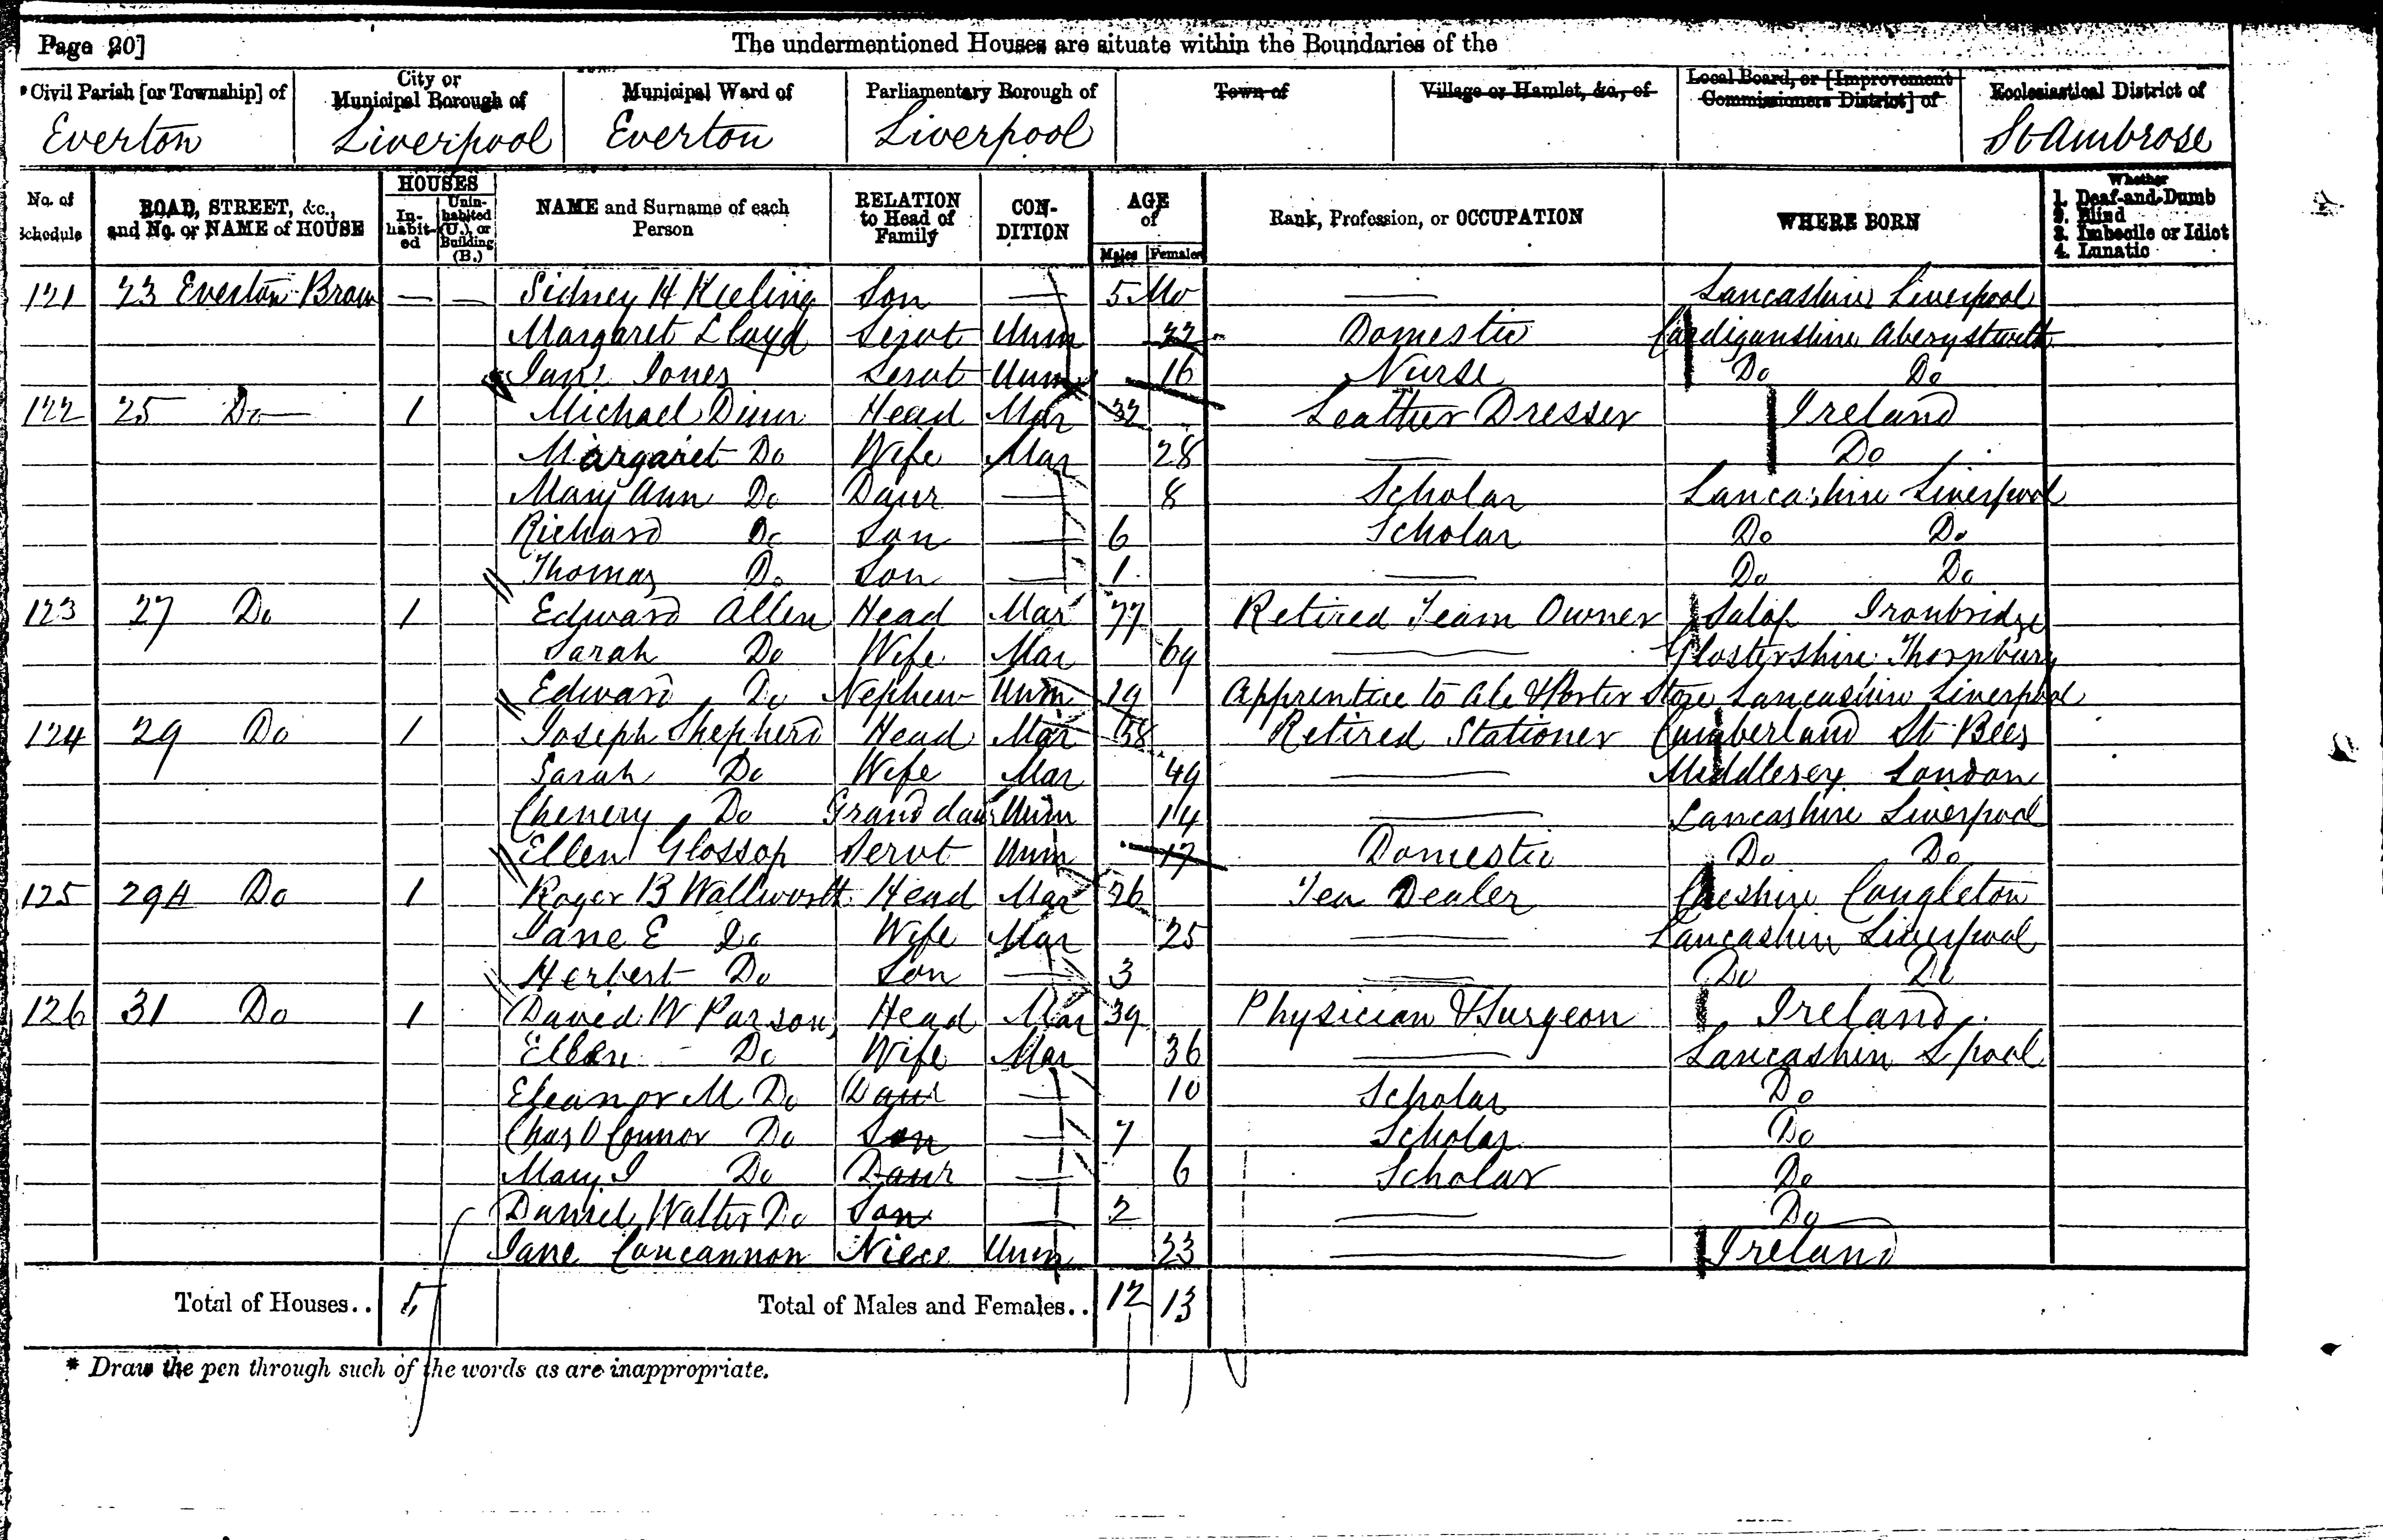 Page 20]
The undermentioned Houses are situate within the Boundaries of the
*Civil Parish [or Township] of City or Municipal Borough of Municipal Ward of Parliamentary Borough of Town of Village or Hamlet, &c., of Local Board, or [Improvement Commissioners District] of Ecclesiastical District of
Everton Liverpool Everton Liverpool St Ambrose
No. of Schedule ROAD, STREET, &c., and No. or NAME of HOUSE HOUSES Inhabited Uninhabited (U.), or Building (B.) NAME and Surname of each Person RELATION to Head of Family CONDITION AGE of Males Females Rank, Profession, or OCCUPATION WHERE BORN Whether 1. Deaf-and-Dumb 2. Blind 3. Imbecile or Idiot 4. Lunatic
121 23 Everton Brow — — Sidney H Keeling Son — 5 Mo — Lancashire Liverpool
Margaret Lloyd Servt Unm 22 Domestic Cardiganshire Aberystwith
Jane Jones Servt Unm 16 Nurse Do Do
122 25 Do 1 Michael Dunn Head Mar 32 Leather Dresser Ireland
Margaret Do Wife Mar 28 — Do
Mary Ann Do Daur — 8 Scholar Lancashire Liverpool
Richard Do Son — 6 Scholar Do Do
Thomas Do Son — 1 — Do Do
123 27 Do 1 Edward Allen Head Mar 77 Retired Team Owner Salop Ironbridge
Sarah Do Wife Mar 69 — Glostershire Thornbury
Edward Do Nephew Unm 19 Apprentice to Ale & Porter Store Lancashire Liverpool
124 29 Do 1 Joseph Shepherd Head Mar 58 Retired Stationer Cumberland St Bees
Sarah Do Wife Mar 49 — Middlesex London
Chenery Do Grand daur Unm 14 — Lancashire Liverpool
Ellen Glossop Servt Unm 17 Domestic Do Do
125 29A Do 1 Roger B Wallworth Head Mar 26 Tea Dealer Cheshire Congleton
Jane E Do Wife Mar 25 — Lancashire Liverpool
Herbert Do Son — 3 — Do Do
126 31 Do 1 David W Parsons Head Mar 39 Physician & Surgeon Ireland
Ellen Do Wife Mar 36 — Lancashire Lpool
Eleanor M Do Daur — 10 Scholar Do
Chas O Connor Do Son — 7 Scholar Do
Mary J Do Daur — 6 Scholar Do
Daniel Walter Do Son — 2 — Do
Jane Concannon Niece Unm 23 — Ireland
Total of Houses.. 5 Total of Males and Females.. 12 13
* Draw the pen through such of the words as are inappropriate.